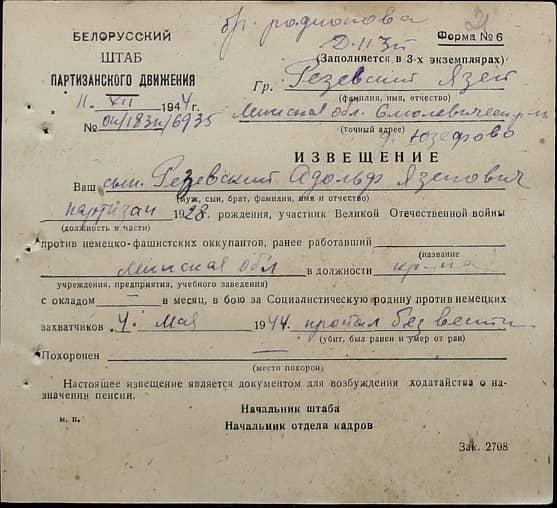 бр. Родионова
21
БЕЛОРУССКИЙ
ШТАБ
ПАРТИЗАНСКОГО ДВИЖЕНИЯ
Форма № 6
(Заполняется в 3-х экземплярах)
"11" XII 1944 г.
Гр. Резевский Язеп
(фамилия, имя, отчество)
№ 6935
Минская обл. Смолевический р-н
(точный адрес)
д. Юзефово
ИЗВЕЩЕНИЕ
Ваш сын Резевский Адольф Язепович
(муж, сын, брат, фамилия, имя и отчество)
партизан 1928 рождения, участник Великой Отечественной войны
(должность в части)
против немецко-фашистских оккупантов, ранее работавший
(название
Минская обл в должности
учреждения, предприятия, учебного заведения)
с окладом — в месяц, в бою за Социалистическую родину против немецких
захватчиков 4. Мая 1944 пропал без вести
(убит, был ранен и умер от ран)
Похоронен —
(место похорон)
Настоящее извещение является документом для возбуждения ходатайства о на-
значении пенсии.
Начальник штаба
м. п.
Начальник отдела кадров
Зак. 2708